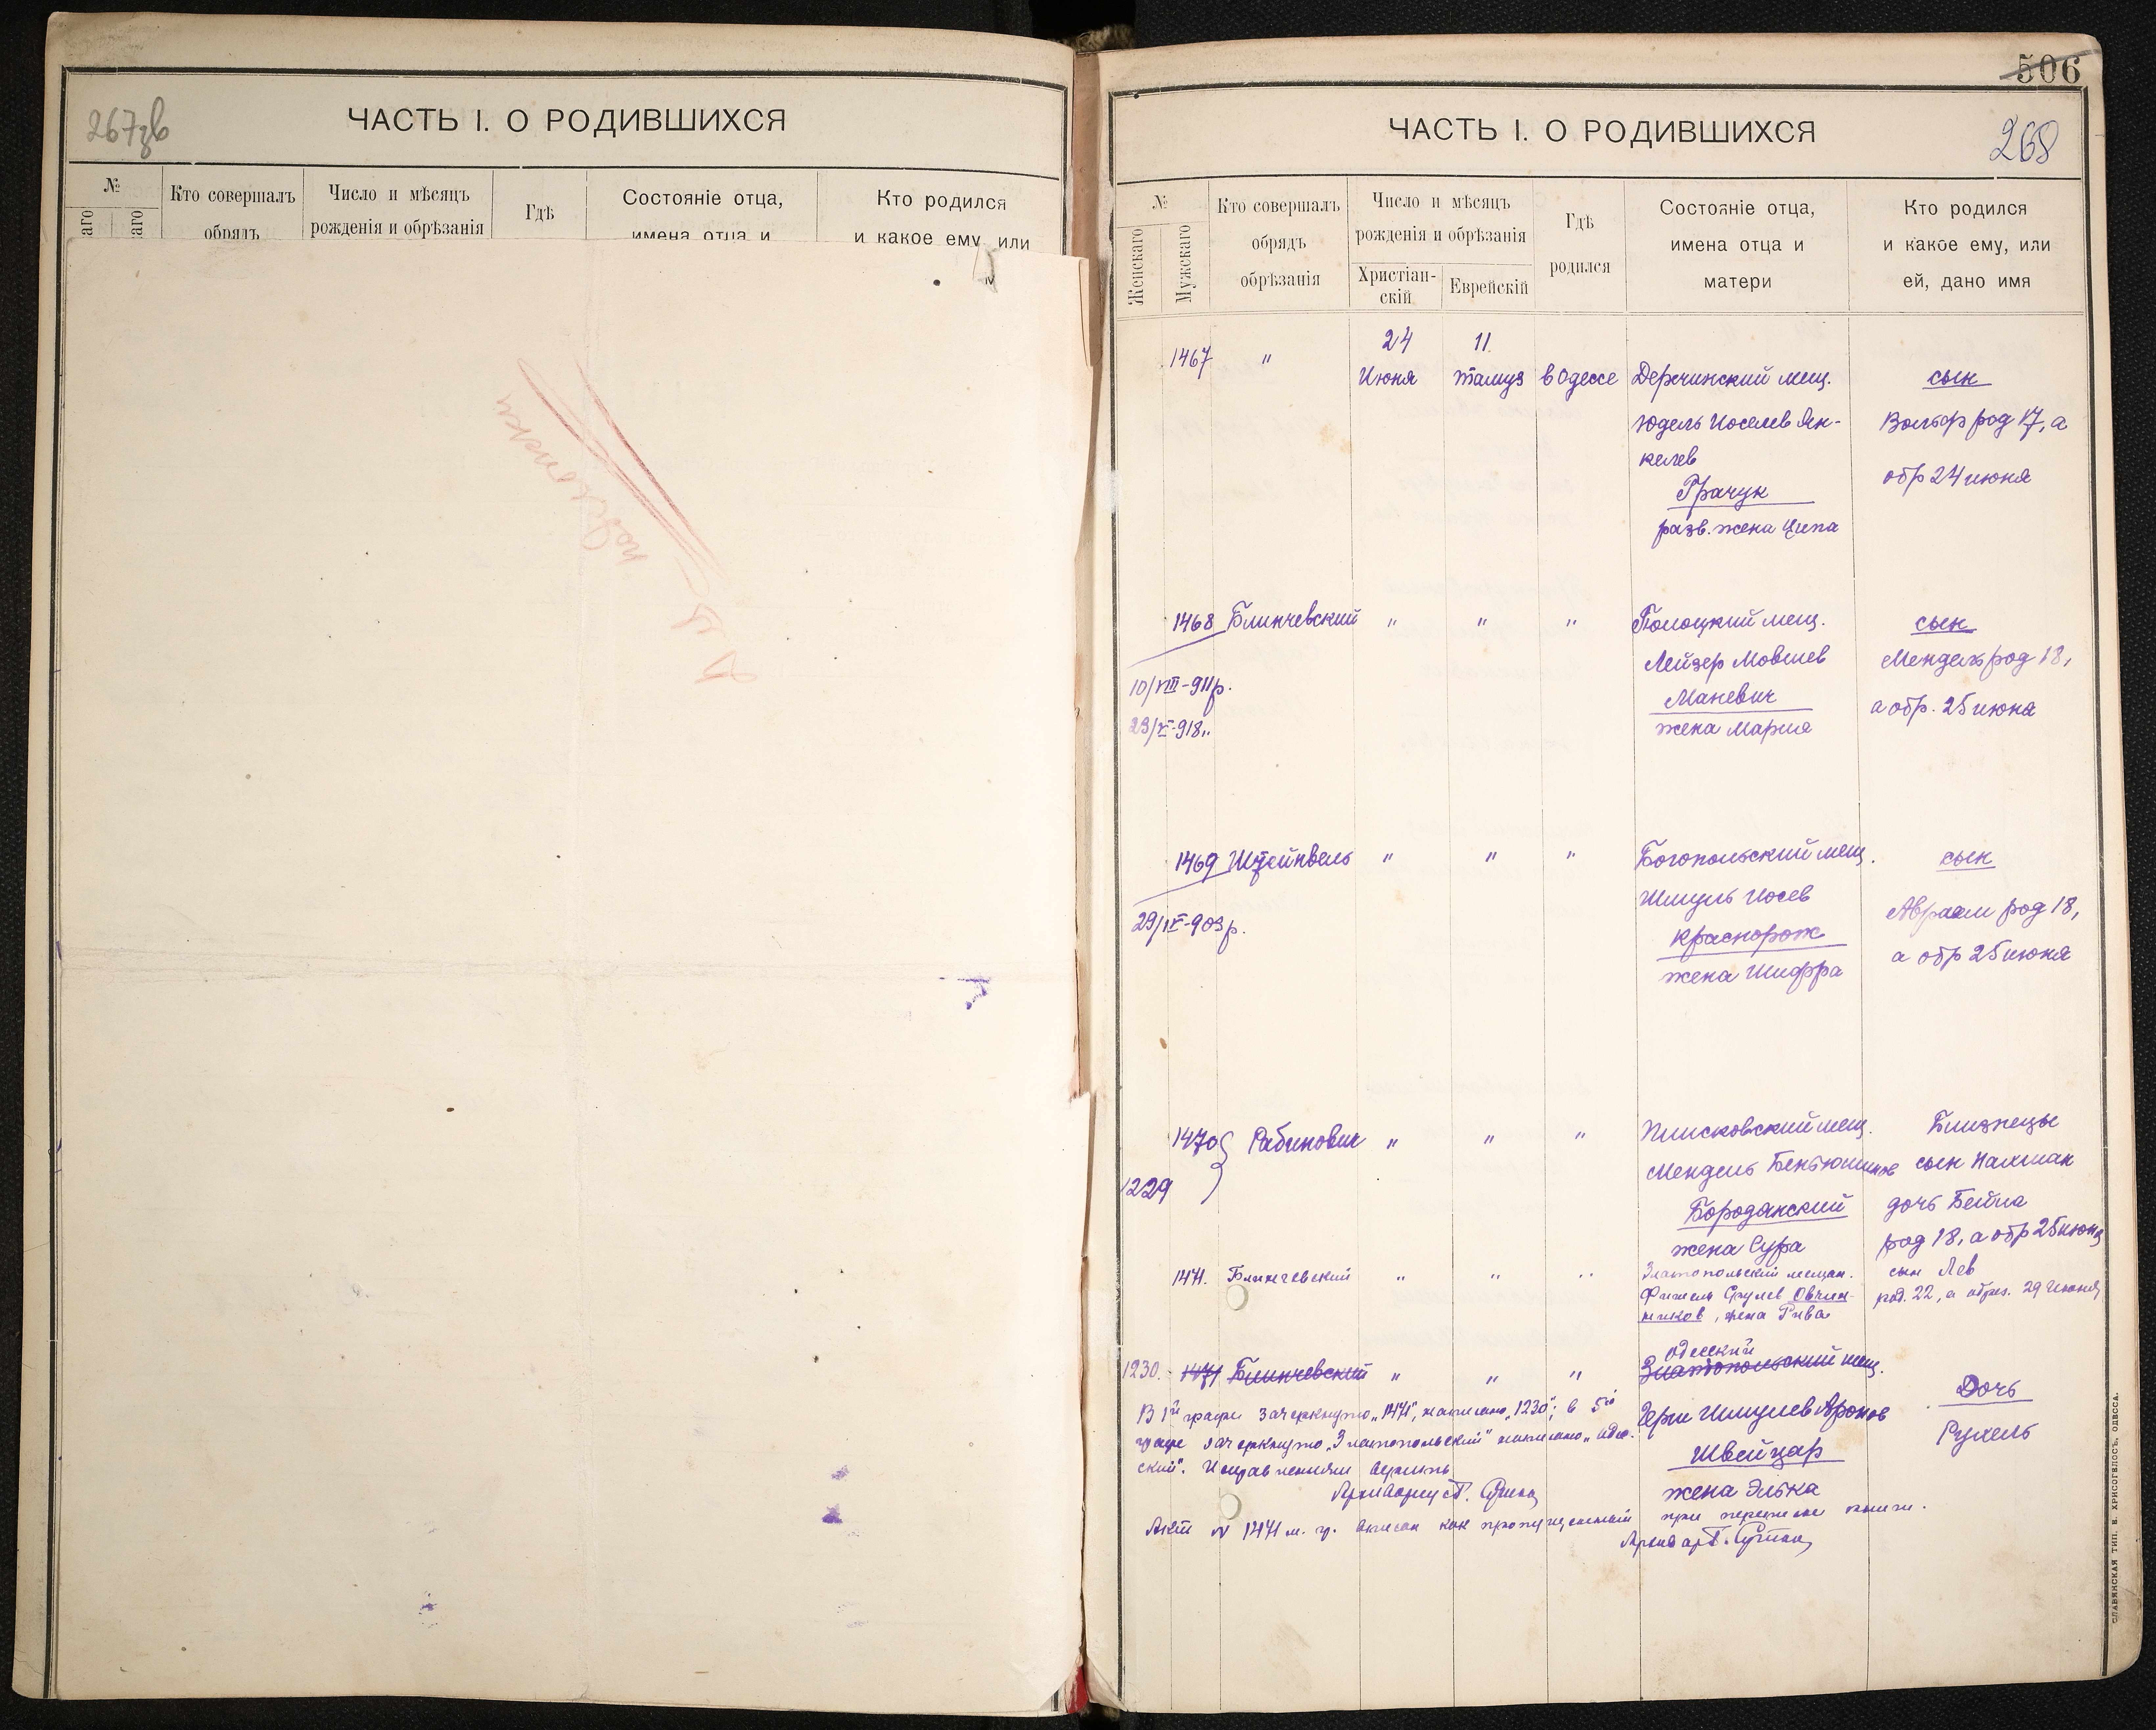 267зв
ЧАСТЬ I. О РОДИВШИХСЯ
№
Кто совершалъ
обрядъ
Число и мѣсяцъ
рожденія и обрѣзанія
Гдѣ
Состояніе отца,
имена отца и
Кто родился
и какое ему, или
506
ЧАСТЬ I. О РОДИВШИХСЯ
268
№
Женскаго
Мужскаго
Кто совершалъ
обрядъ
обрѣзанія
Число и мѣсяцъ
рожденія и обрѣзанія
Христіан-
скій
Еврейскій
Гдѣ
родился
Состояніе отца,
имена отца и
матери
Кто родился
и какое ему, или
ей, дано имя
1467 " 24 11
Июня тамуз в Одессе Деречинский мещ. сын
Юдель Иоселев Ян- Вольф род 17, а
келев обр 24 июня
Грачук
разв. жена Ципа
1468 Блинчевский " " " Полоцкий мещ. сын
Лейзер Мовшев Мендель род 18,
10/VIII-911р. Маневич а обр. 25 июня
23/V-918 „ жена Мария
1469 Штейнвель " " " Богопольский мещ. сын
Шмуль Иосев Авраам род 18,
29/IV-903р. Краснорож а обр 25 июня
жена Шифра
1470 Рабинович " " " мещ. Близнецы
Мендель сын Нахман
1229 Бородянский дочь Бейла
жена Сура род 18, а обр 25 июня
1471. Блинчевский " " " Златопольский мещан. сын Лев
Фишель Срулев Овчин- род. 22, а обрез. 29 Июня
ников, жена Рива
одесский
1230. 1471 Блинчевский " " " Златопольский мещ. Дочь
В 1й графе зачеркнуто „1471", написано „1230"; в 5й Герш Шмулев Аронов Рухель
графе зачеркнуто „Златопольский" написано „одес- Швейцар
ский". Исправлениям верить жена Элька
Акт N 1471 м. г. вписан как пропущенный при переписке книги.
СЛАВЯНСКАЯ ТИП. Е. ХРИСОГЕЛОСЪ, ОДЕССА.